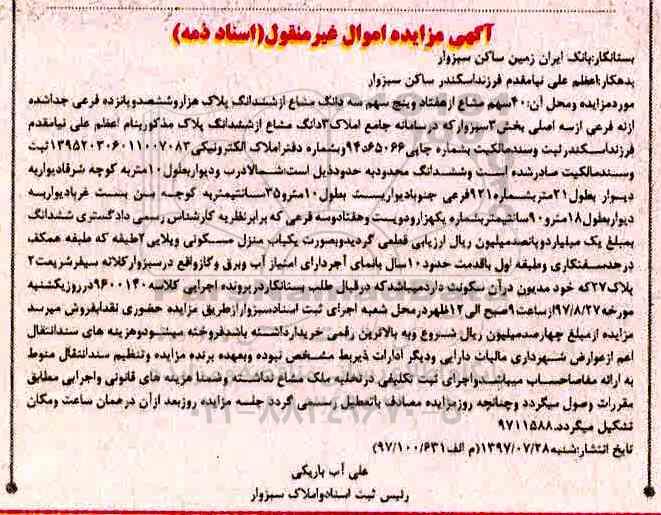 آگهی مزایده اموال غیرمنقول(اسناد ذمه)
بستانکار:بانک ایران زمین ساکن سبزوار
بدهکار:اعظم علی نیامقدم فرزنداسکندر ساکن سبزوار
موردمزایده ومحل آن:۴۰سهم مشاع ازهفتاد وپنج سهم سه دانگ مشاع ازششدانگ پلاک هزاروششصدوپانزده فرعی جداشده
ازنه فرعی ازسه اصلی بخش۳سبزوارکه درسامانه جامع املاک۳دانگ مشاع ازششدانگ پلاک مذکوربنام اعظم علی نیامقدم
فرزنداسکندرثبت وسندمالکیت بشماره چاپی۶۵۰۶۶د۹۴وبشماره دفتراملاک الکترونیکی۱۳۹۵۲۰۳۰۶۰۱۱۰۰۷۰۸۳ثبت
وسندمالکیت صادرشده است وششدانگ محدودبه حدودذیل است:شمالادرب ودیواربطول۱۰متربه کوچه شرقادیواربه
دیوار بطول۲۱متربشماره۹۲۱فرعی جنوبادیواریست بطول۱۰مترو۳۵سانتیمتربه کوچه سن بست غربادیواربه
دیواربطول۱۸مترو۹۰سانتیمتربشماره یکهزارودویست وهفتادوسه فرعی که برابرنظریه کارشناس رسمی دادگستری ششدانگ
بمبلغ یک میلیاردوپانصدمیلیون ریال ارزیابی قطعی گردیدوبصورت یکباب منزل مسکونی ویلایی۲طبقه که طبقه همکف
درحدسفتکاری وطبقه اول باقدمت حدود۱۰سال بانمای آجردارای امتیاز آب وبرق وگازواقع درسبزوارکلاته سیفرشریعت۲
پلاک۲۷که خود مدیون درآن سکونت داردمیباشدکه درقبال طلب بستانکاردرپرونده اجرایی کلاسه۹۶۰۰۱۴۰درروزیکشنبه
مورخه۹۷/۸/۲۷ازساعت۹صبح الی۱۲ظهردرمحل شعبه اجرای ثبت اسنادسبزوارازطریق مزایده حضوری نقدابفروش میرسد
مزایده ازمبلغ چهارصدمیلیون ریال شروع وبه بالاترین رقمی خریدارداشته باشدفروخته میشودوهزینه های سندانتقال
اعم ازعوارض شهرداری مالیات دارایی ودیگر ادارات ذیربط مشخص نبوده وبعهده برنده مزایده وتنظیم سندانتقال منوط
به ارائه مفاصاحساب میباشدواجرای ثبت تکلیفی درتخلیه ملک مشاع نداشته وضمنا هزینه های قانونی واجرایی مطابق
مقررات وصول میگردد وچنانچه روزمزایده مصادف باتعطیل رسمی گردد جلسه مزایده روزبعد ازآن درهمان ساعت ومکان
تشکیل میگردد.۹۷۱۱۵۸۸
تایخ انتشار:شنبه۱۳۹۷/۰۷/۲۸(م الف۹۷/۱۰۰/۶۳۱)
علی آب باریکی
رئیس ثبت اسنادواملاک سبزوار